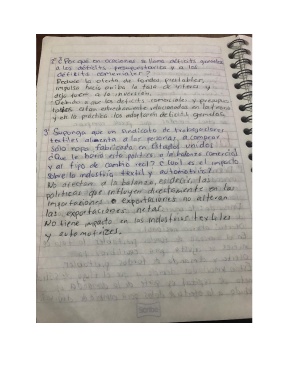 2. ¿Por qué en ocasiones se llama déficits gemelos
a los déficits presupuestarios y a los
déficits comerciales?
Reduce la oferta de fondos prestables,
impulsa hacia arriba la tasa de interés y
deja fuera a la inversión.
los déficits comerciales y presupues
tados están estrechamente relacionados en la teoría
y en la práctica los adoptaron déficits gemelos.
3. Suponga que un sindicato de trabajadores
textiles alienta a las personas a comprar
sólo ropa fabricada en Estados Unidos
¿Que le haría esta política a la balanza comercial
y al tipo de cambio real? ¿Cual es el impacto
sobre la industria textil y automotriz?
No afectan a la balanza, es decir, las
políticas que influyen directamente en las
importaciones o exportaciones no alteran
las exportaciones netas.
No tiene impacto en las industrias textiles
y automotrices.